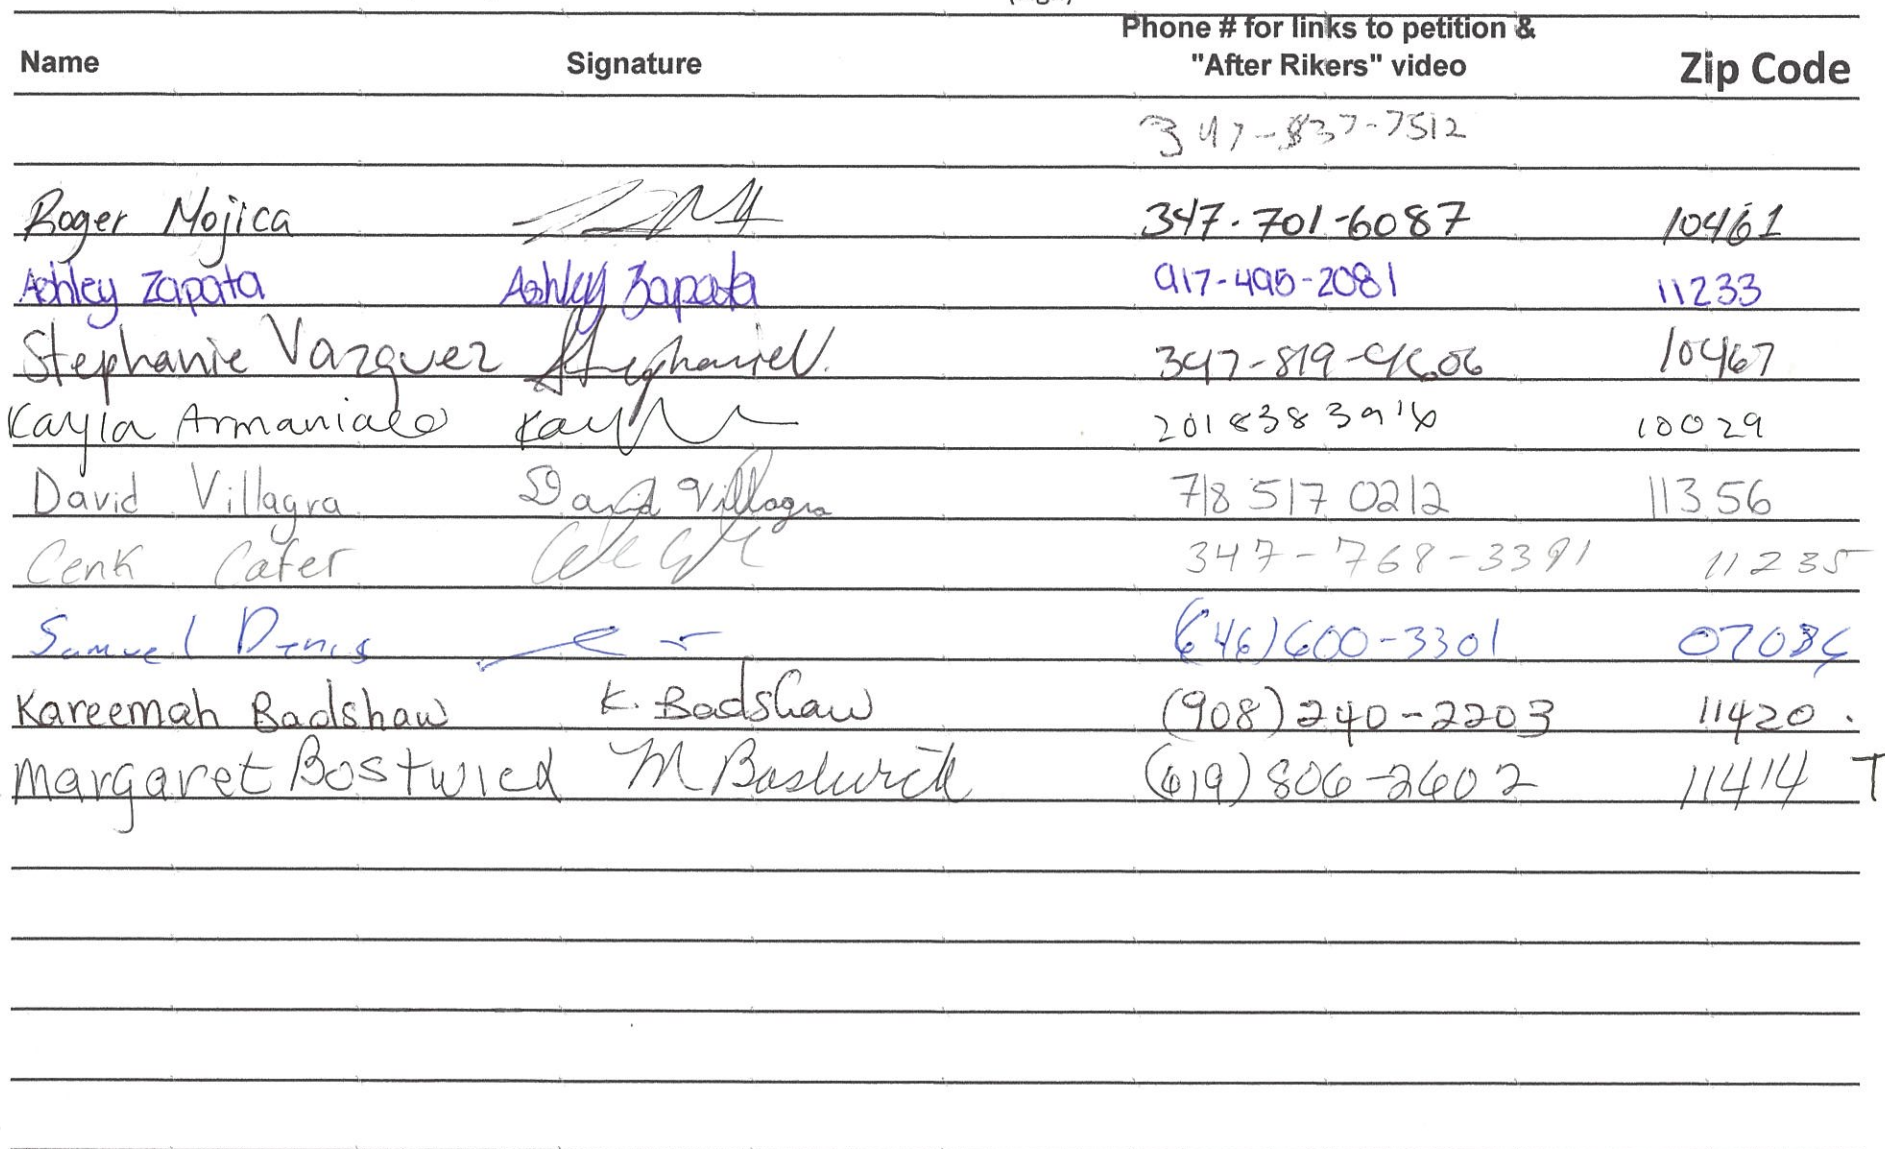 Phone # for links to petition &
Name Signature "After Rikers" video Zip Code
347-837-7512
Roger Mojica 347-701-6087 10461
Ashley Zapata Ashley Zapata 917-495-2081 11233
Stephanie Vazquez Stephanie V. 347-819-9606 10467
Kayla Armaniaco Kay 2018383916 10029
David Villagra David Villagra 718 517 0212 11356
Cenk Cafer 347-768-3391 11235
Samuel Denis (646)600-3301
Kareemah Badshaw K. Badshaw (908)240-2203 11420.
Margaret Bostwick M Bostwick (619)806-2602 11414 T